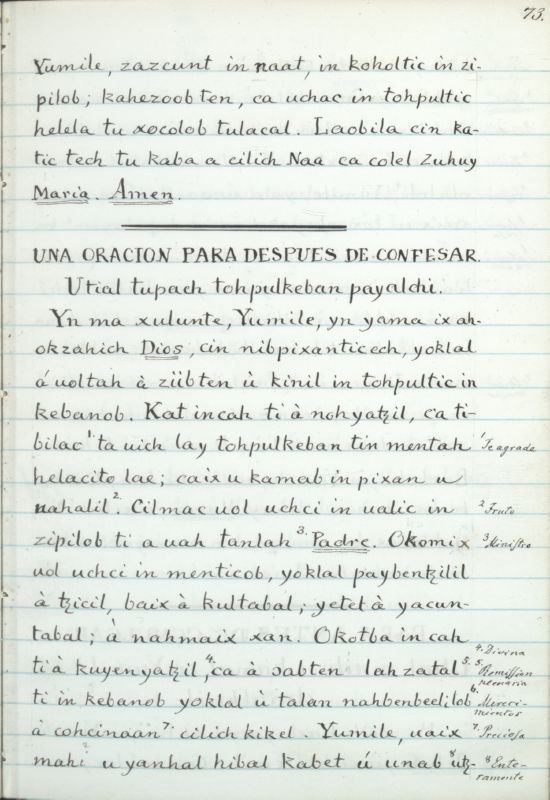 73.
Yumile, zazcunt in naat, in koholtic in zi-
pilob; kahezoob ten, ca uchac in tohpultic
helela tu xocolob tulacal. Laobila cin ka-
tic tech tu kaba a cilich Naa ca colel Zuhuy
Maria. Amen.
UNA ORACION PARA DESPUES DE CONFESAR.
Utial tupach tohpulkeban payalchi.
Yn ma xulunte, Yumile, yn yama ix ah-
okzahich Dios, cin nibpixanticech, yoklal
á uoltah à ziibten ù kinil in tohpultic in
kebanob. Kat incah ti à nohyatzil, ca ti-
bilac 1 ta uich lay tohpulkeban tin mentah
1 Te agrada
helacito lae; caix u kamab in pixan u
nahalil 2. Cilmac uol uchci in ualic in
2 Fruto
zipilob ti a uah tanlah 3. Padre. Okomix
3 Ministro
uol uchci in menticob, yoklal paybentzilil
à tzicil, baix à kultabal; yetet à yacun-
tabal; à nahmaix xan. Okotba in cah
ti à kuyenyatzil 4, ca à sabten lah zatal 5.
4. Divina
5 Remission
plenaria
ti in kebanob yoklal ù talan nahbenbeelilob 6.
6. Mereci-
mientos
à cohcinaan 7. cilich kikel. Yumile, uaix
7. Preciosa
mahi u yanhal hibal kabet ú unab 8 utz-
8 Ente-
ramente